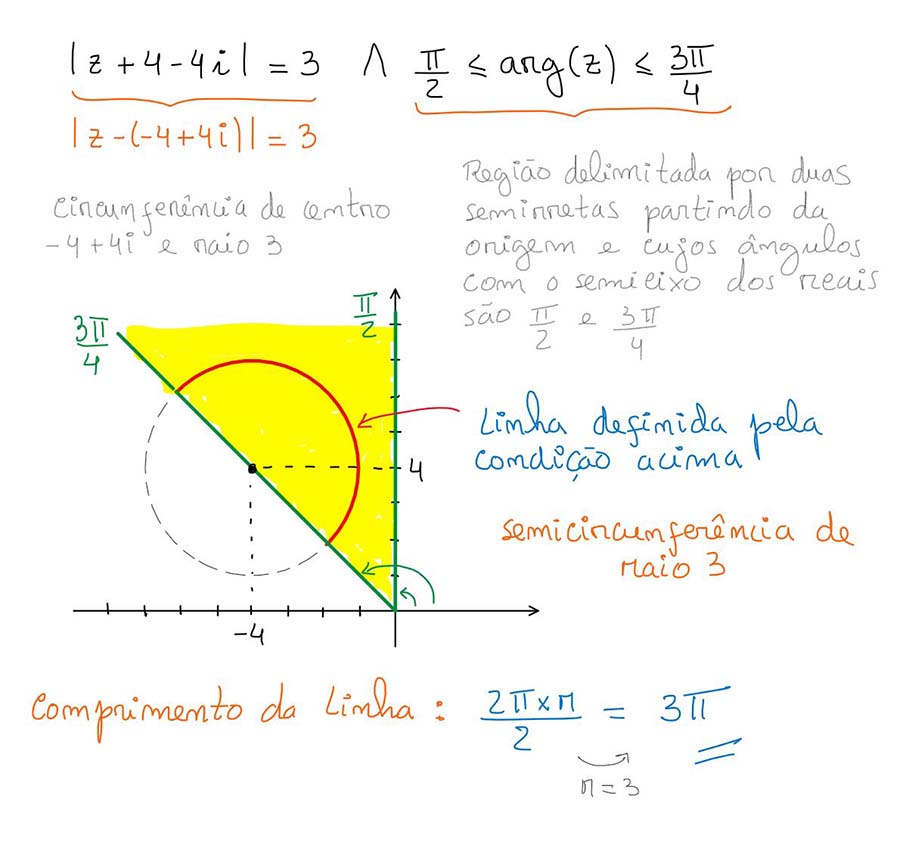 |z+4-4i| = 3 ∧ π/2 ≤ arg(z) ≤ 3π/4
|z-(-4+4i)| = 3
circunferência de centro
-4+4i e raio 3
Região delimitada por duas
semirretas partindo da
origem e cujos ângulos
com o semieixo dos reais
são π/2 e 3π/4
π/2
3π/4
Linha definida pela
condição acima
4
semicircunferência de
raio 3
-4
Comprimento da Linha : 2π×r/2 = 3π
r=3